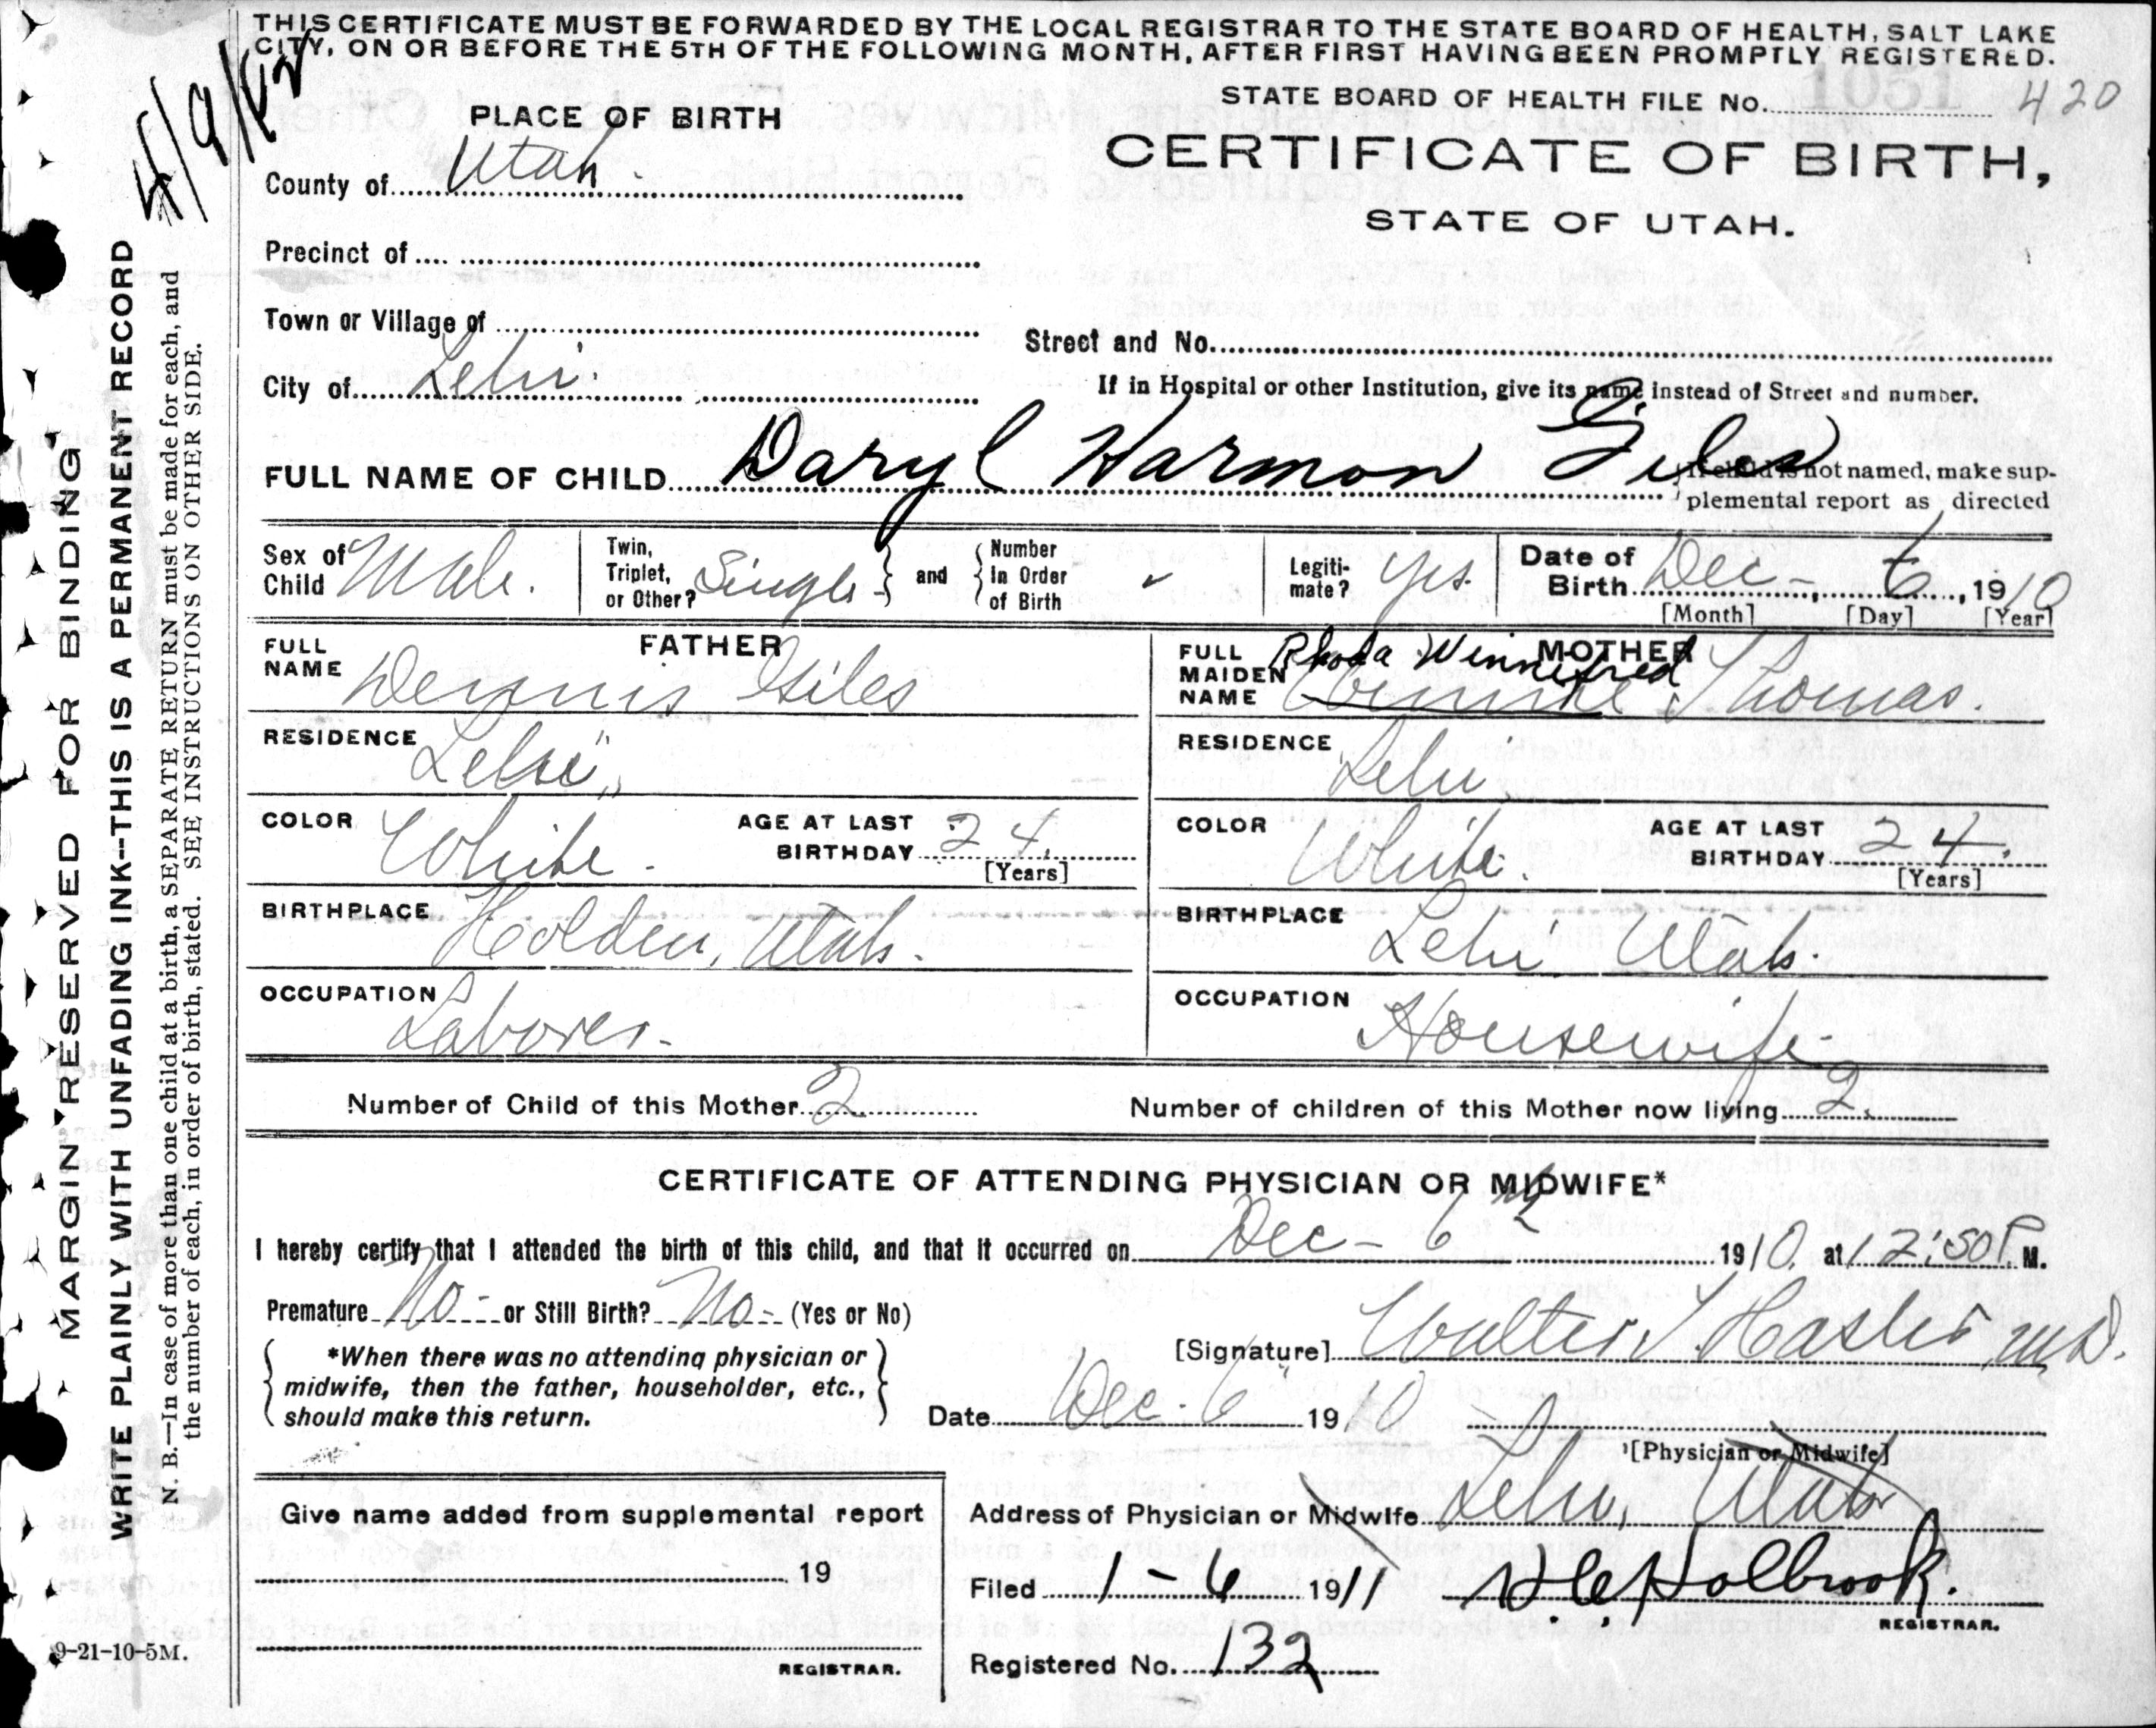 THIS CERTIFICATE MUST BE FORWARDED BY THE LOCAL REGISTRAR TO THE STATE BOARD OF HEALTH, SALT LAKE
CITY, ON OR BEFORE THE 5TH OF THE FOLLOWING MONTH, AFTER FIRST HAVING BEEN PROMPTLY REGISTERED.
STATE BOARD OF HEALTH FILE No. 1051 420
CERTIFICATE OF BIRTH,
STATE OF UTAH.
PLACE OF BIRTH
County of Utah.
Precinct of
Town or Village of
Street and No.
City of Lehi.
If in Hospital or other Institution, give its name instead of Street and number.
FULL NAME OF CHILD Daryl Harmon Giles
If child is not named, make sup-
plemental report as directed
Sex of Child Male.
Twin, Triplet, or Other? Single
and
Number in Order of Birth
Legiti-mate? Yes.
Date of Birth Dec - 6, 1910
[Month] [Day] [Year]
FATHER
FULL NAME Dennis Giles
RESIDENCE Lehi
COLOR White.
AGE AT LAST BIRTHDAY 24.
[Years]
BIRTHPLACE Holden, Utah.
OCCUPATION Laborer.
MOTHER
FULL MAIDEN NAME Rhoda Winnifred Thomas.
RESIDENCE Lehi
COLOR White.
AGE AT LAST BIRTHDAY 24.
[Years]
BIRTHPLACE Lehi Utah.
OCCUPATION Housewife
Number of Child of this Mother 2
Number of children of this Mother now living 2.
CERTIFICATE OF ATTENDING PHYSICIAN OR MIDWIFE*
I hereby certify that I attended the birth of this child, and that it occurred on Dec - 6th 1910, at 12:50 P. M.
Premature No - or Still Birth? No - (Yes or No)
*When there was no attending physician or
midwife, then the father, householder, etc.,
should make this return.
[Signature] Walter T Hasler, M.D.
Date Dec. 6 1910
[Physician or Midwife]
Give name added from supplemental report
19
REGISTRAR.
Address of Physician or Midwife Lehi, Utah
Filed 1-6 1911 H.C. Holbrook.
REGISTRAR.
Registered No. 132
9-21-10-5M.
MARGIN RESERVED FOR BINDING
WRITE PLAINLY WITH UNFADING INK--THIS IS A PERMANENT RECORD
N. B.—In case of more than one child at a birth, a SEPARATE RETURN must be made for each, and
the number of each, in order of birth, stated. SEE INSTRUCTIONS ON OTHER SIDE.